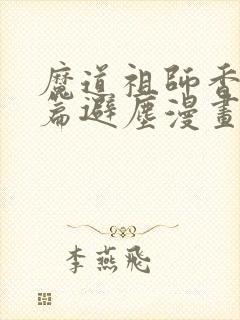 魔道祖師香
篇避塵漫畫
李燕飛